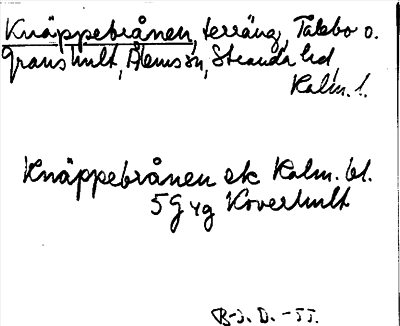 Knäppebrånen, terräng, Talebo o.
Granshult, Ålemsön, Stranda hd,
Kalm. l.
Knäppebrånen ek Kalm. bl.
5G 4g Kovershult
B-J. D. -55.